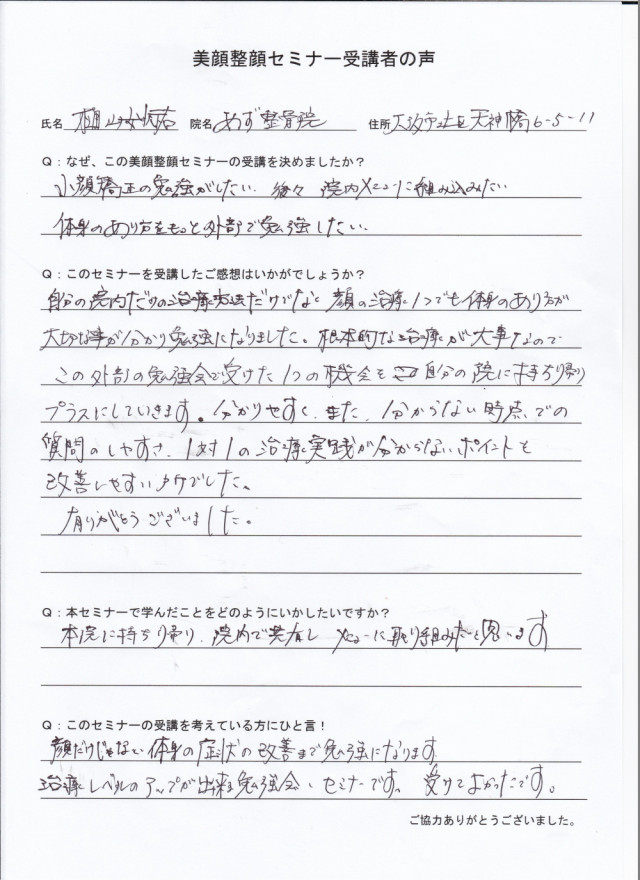 美顔整顔セミナー受講者の声
氏名 院名 あず整骨院 住所 大阪市北区天神橋6-5-11
Q：なぜ、この美顔整顔セミナーの受講を決めましたか？
小顔矯正の勉強がしたい、後々 院内メニューに組み込みたい
体身のあり方をもっと外部で勉強したい、
Q：このセミナーを受講したご感想はいかがでしょうか？
自分の院内だけの治療方法だけでなく 顔の治療1つでも体身のあり方が
大切な事が分かり勉強になりました。根本的な治療が大事なので
この外部の勉強会で受けた1つの機会を 自分の院に持ち帰り
プラスにしていきます。分かりやすく、また、分からない時点での
質問のしやすさ、1対1の治療実践が分からないポイントも
改善しやすいカタでした、
有りがとうございました。
Q：本セミナーで学んだことをどのようにいかしたいですか？
本院に持ち帰り、院内で共有し メニューに取り組みたいと思います
Q：このセミナーの受講を考えている方にひと言！
顔だけじゃない体身の症状の改善まで勉強になります
治療レベルのアップが出来る勉強会、セミナーです。受けてよかったです。
ご協力ありがとうございました。